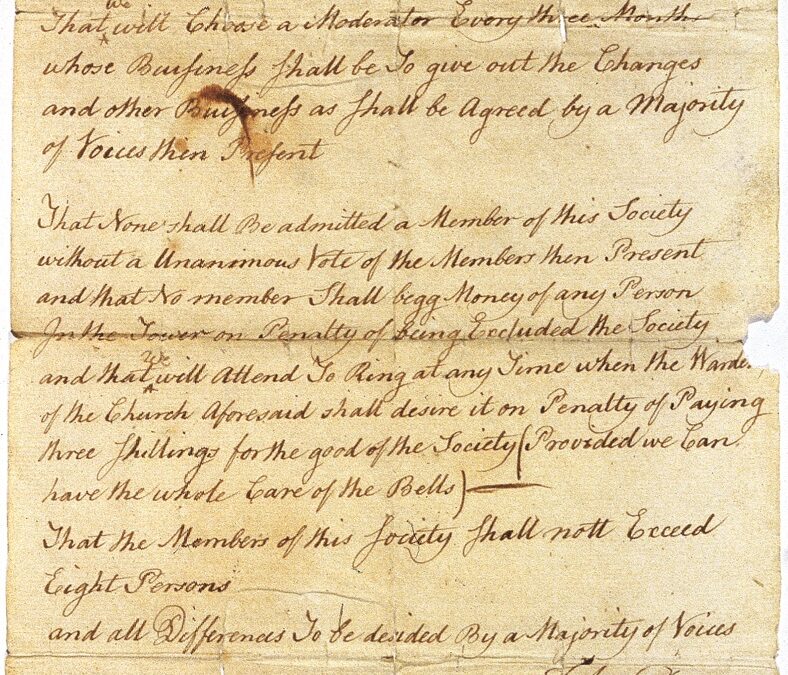 That we will Choose a Moderator Every three Month
whose Buisiness shall be To give out the Changes
and other Buisiness as shall be Agreed by a Majority
of Voices then Present
That None shall Be admitted a Member of this Society
without a Unanimous Vote of the Members then Present
and that No member Shall begg Money of any Person
In the Tower on Penalty of being Excluded the Society
and that we will Attend To Ring at any Time when the Warden
of the Church Aforesaid shall desire it on Penalty of Paying
three shillings for the good of the Society (Provided we Can
have the whole Care of the Bells)
That the Members of this Society shall nott Exceed
Eight Persons
and all Differences To be desided By a Majority of Voices